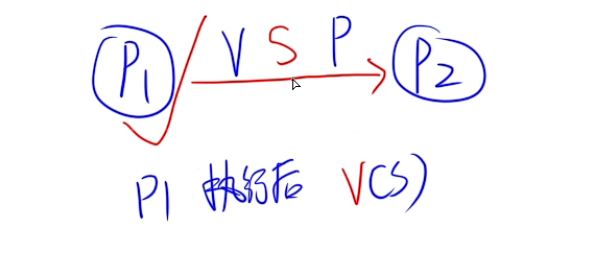 P1 V S P P2
P1 执行后 V(S)